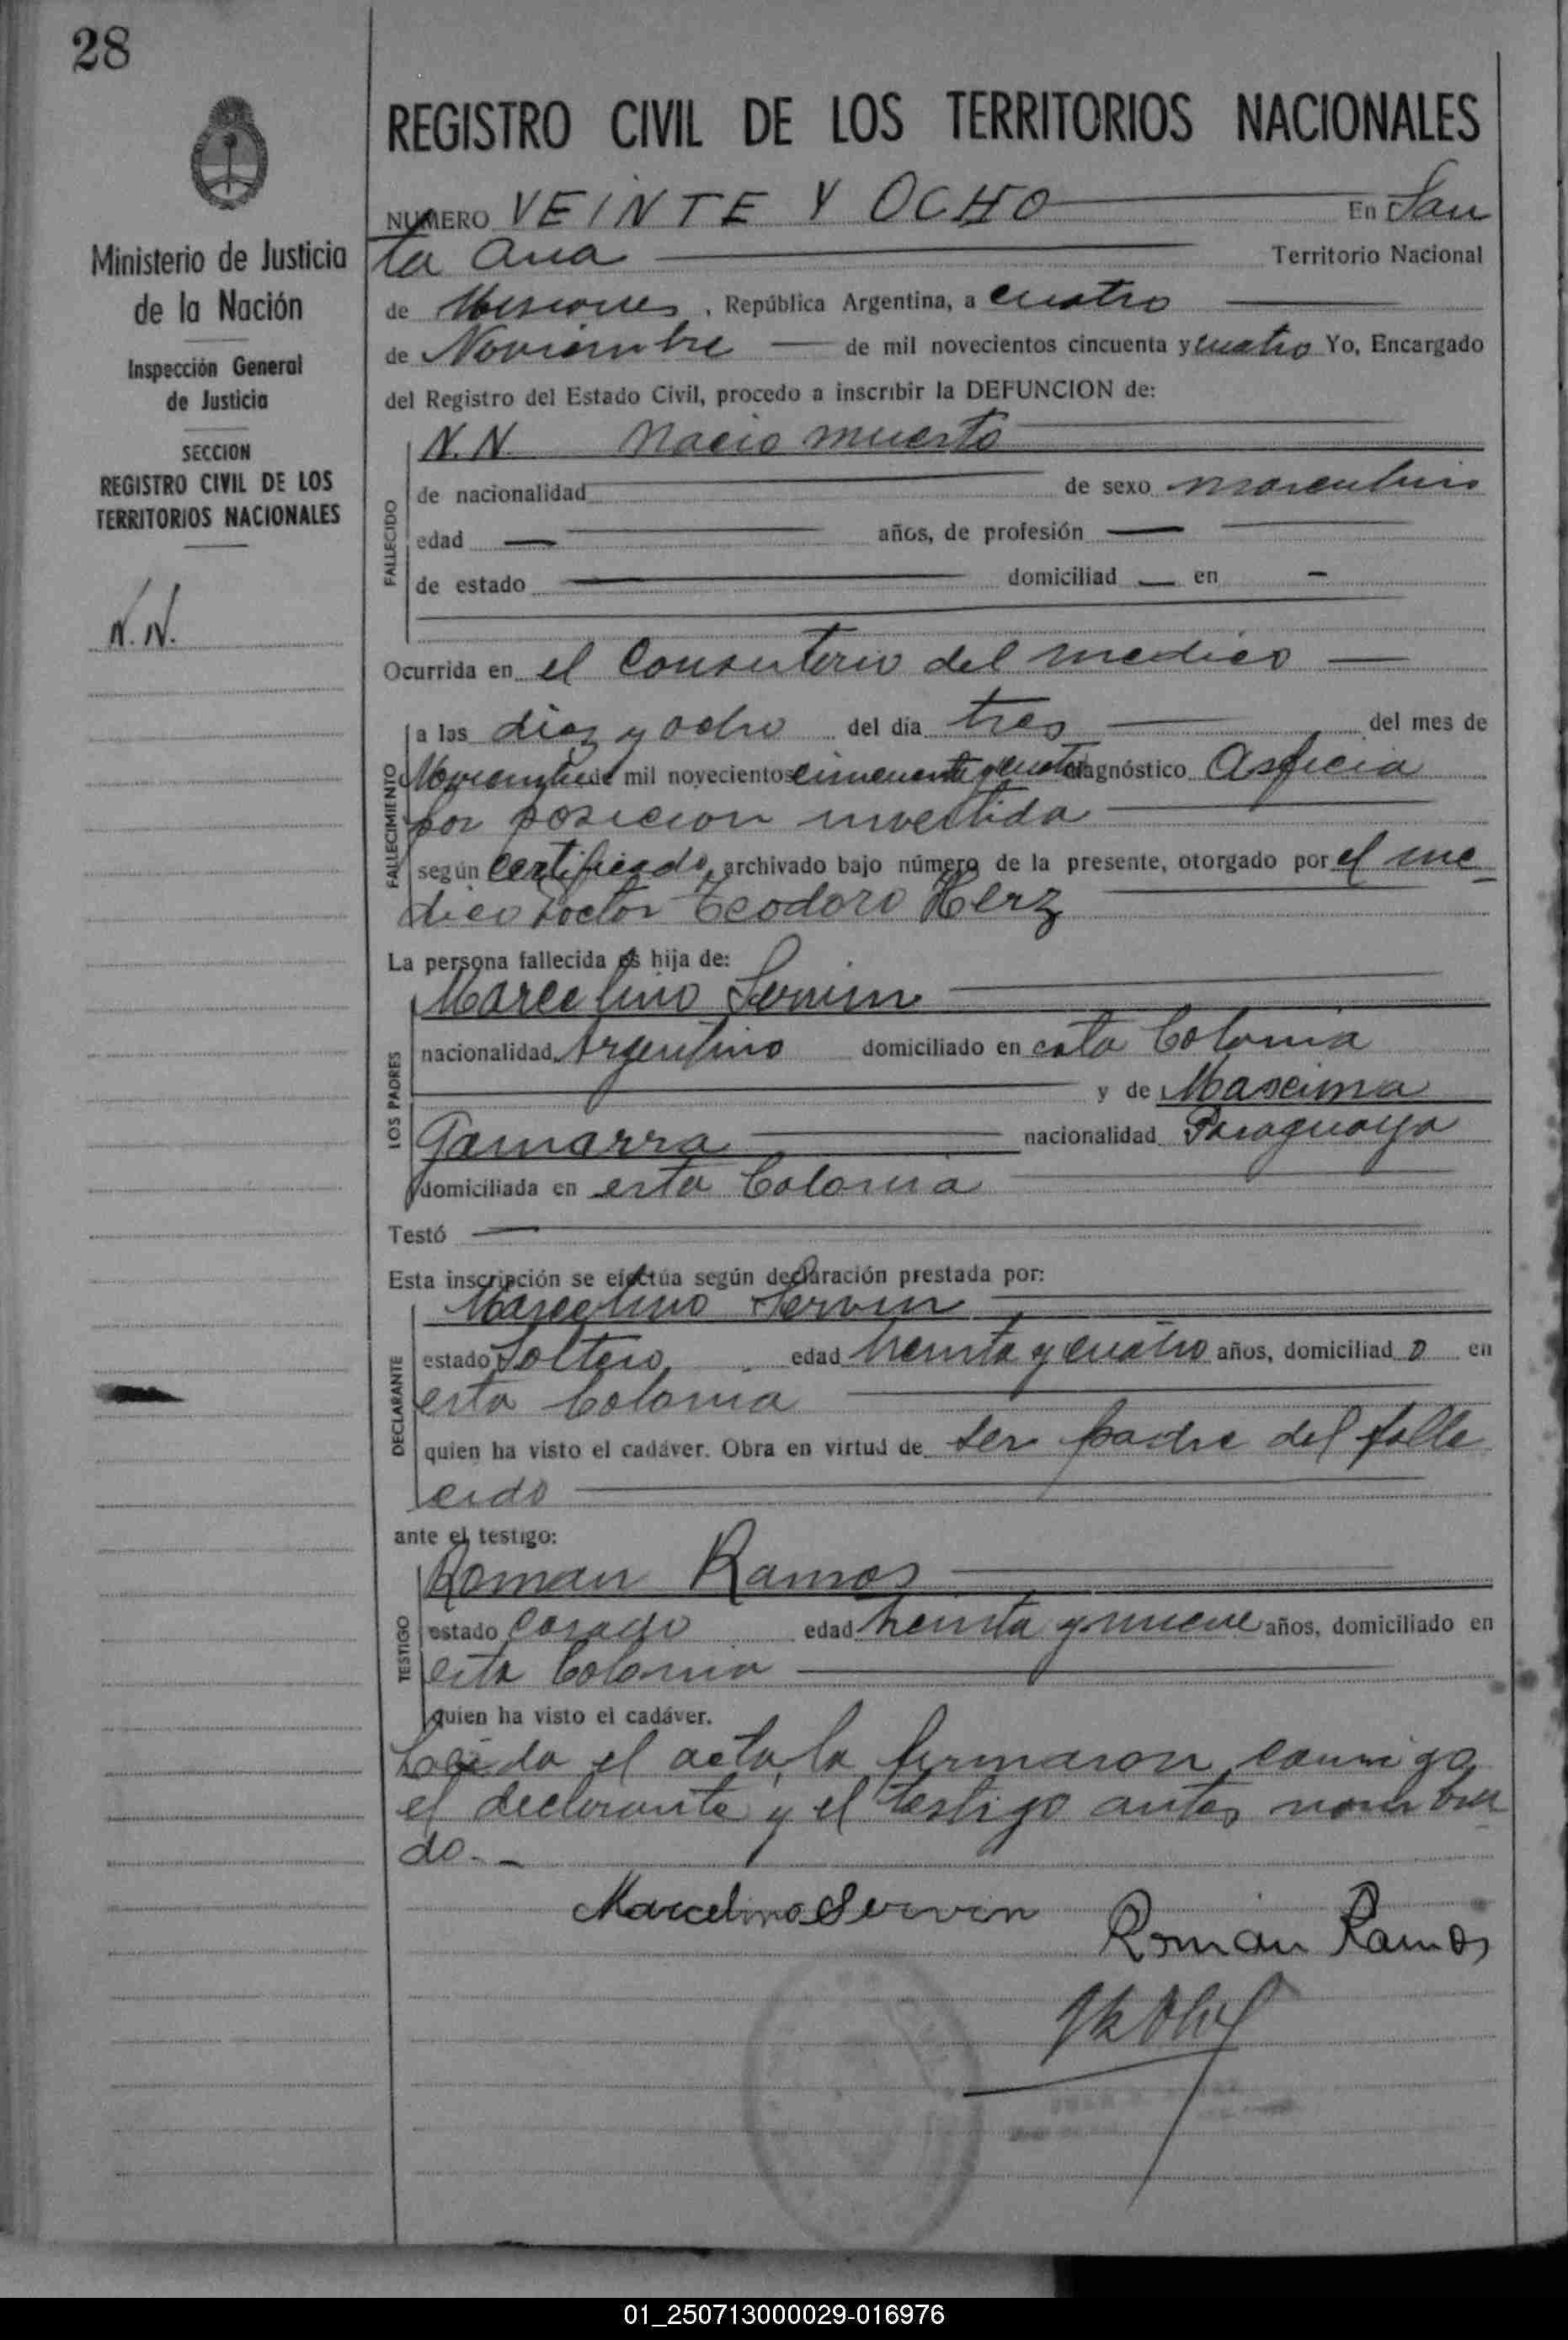 28
Ministerio de Justicia
de la Nación
Inspección General
de Justicia
SECCION
REGISTRO CIVIL DE LOS
TERRITORIOS NACIONALES
N. N.
REGISTRO CIVIL DE LOS TERRITORIOS NACIONALES
NUMERO VEINTE Y OCHO En San
ta Ana Territorio Nacional
de Misiones, República Argentina, a cuatro
de Noviembre de mil novecientos cincuenta y cuatro Yo, Encargado
del Registro del Estado Civil, procedo a inscribir la DEFUNCION de:
FALLECIDO
N.N. Nacio muerto
de nacionalidad de sexo masculino
edad — años, de profesión —
de estado — domiciliad — en -
Ocurrida en el Consultorio del medico —
FALLECIMIENTO
a las diez y ocho del día tres del mes de
Noviembre de mil novecientos cincuenta y cuatro diagnóstico Asficia
por posicion invertida
según certificado, archivado bajo número de la presente, otorgado por el me-
dico Doctor Teodoro Herz
La persona fallecida es hija de:
LOS PADRES
Marcelino Servin
nacionalidad Argentino domiciliado en esta Colonia
y de Maxima
Gamarra nacionalidad Paraguaya
domiciliada en esta Colonia
Testó —
Esta inscripción se efectúa según declaración prestada por:
DECLARANTE
Marcelino Servin
estado Soltero, edad treinta y cuatro años, domiciliad o en
esta Colonia
quien ha visto el cadáver. Obra en virtud de ser padre del falle
cido
ante el testigo:
TESTIGO
Roman Ramos
estado casado edad treinta y nueve años, domiciliado en
esta Colonia
quien ha visto el cadáver.
Leida el acta, la firmaron conmigo
el declarante y el testigo antes nombra
do.-
Marcelino Servin
Román Ramos
01_250713000029-016976